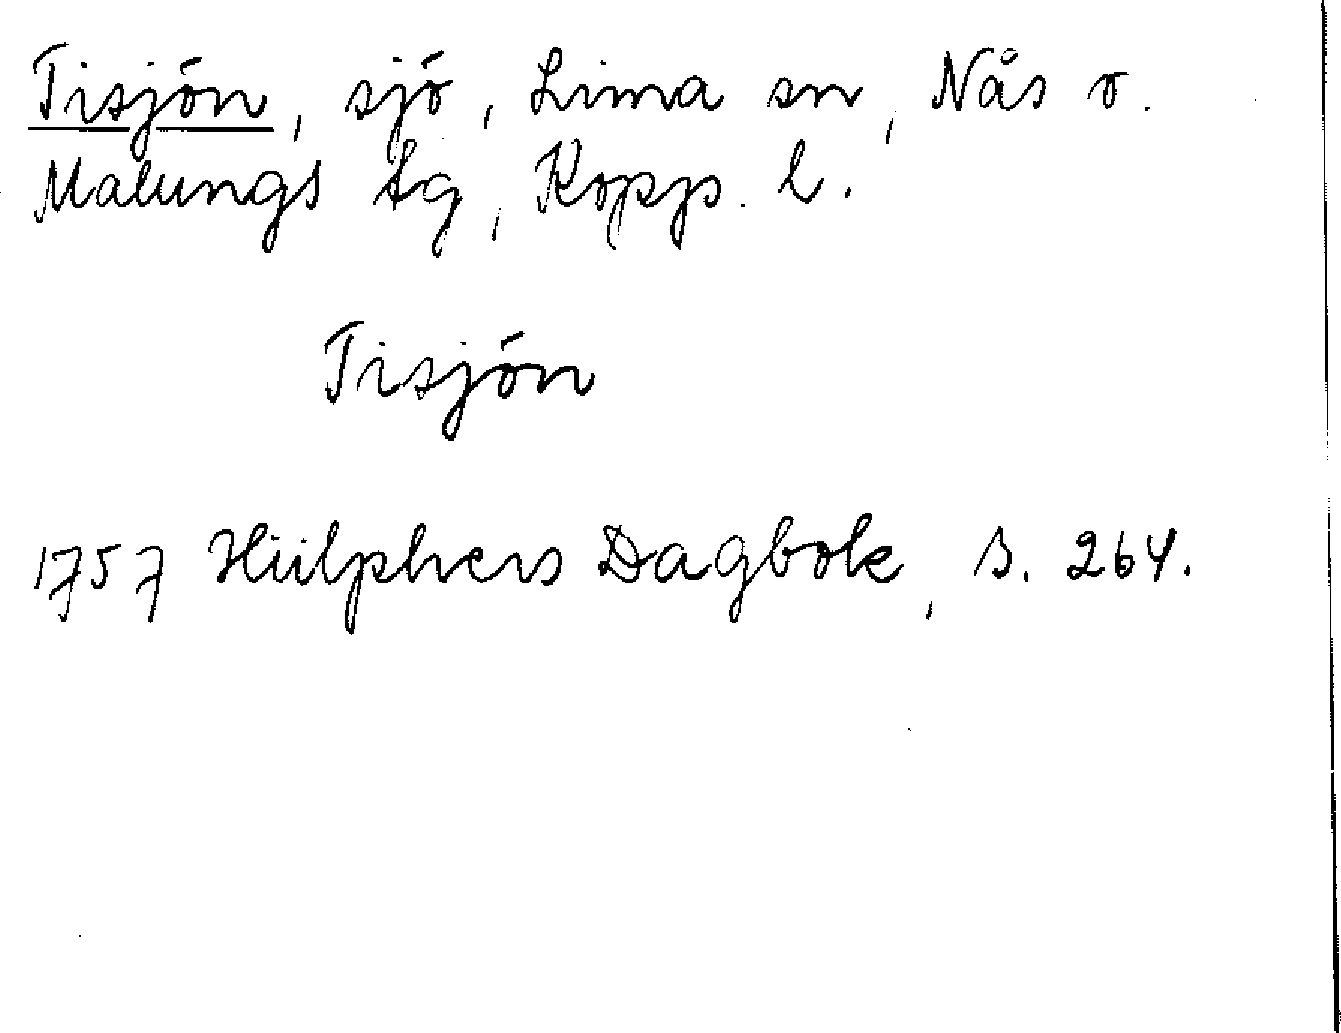 Tisjön, sjö, Lima sn, Nås o.
Malungs tg, Kopp. l.
Tisjön
1757 Hülphers Dagbok, s. 264.